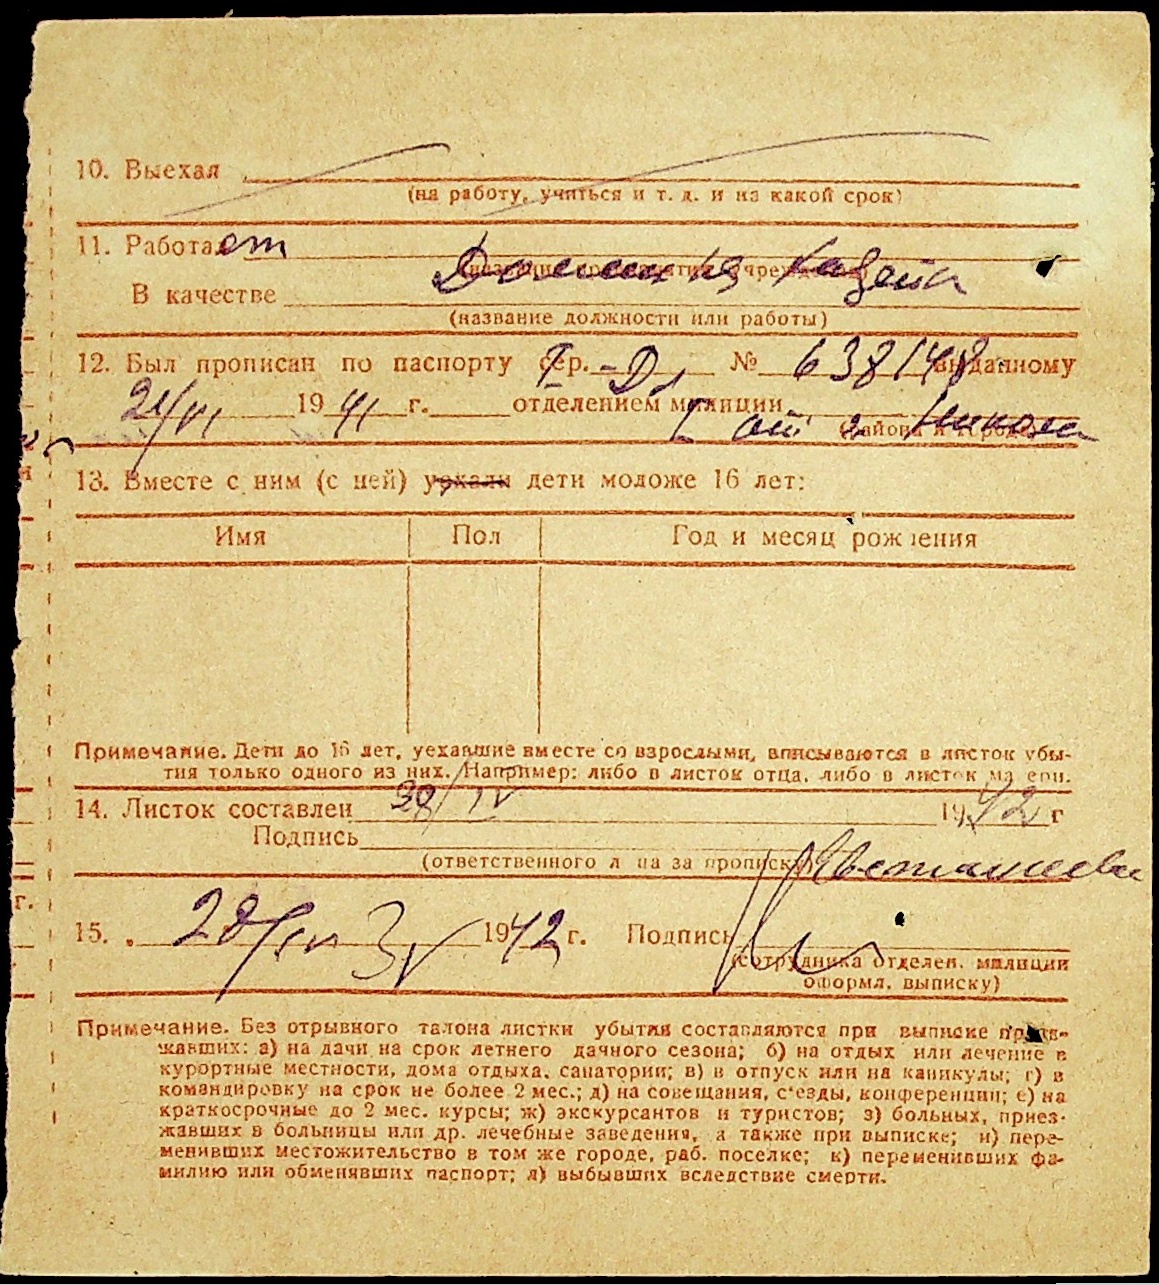 10. Выехал
(на работу, учиться и т. д. и на какой срок)
11. Работает
Домашняя хозяйка
В качестве
(название должности или работы)
12. Был прописан по паспорту сер. I-Д № 638148 выданному
21/VI 1941 г. отделением милиции
(района и города)
13. Вместе с ним (с ней) уехали дети моложе 16 лет:
Имя Пол Год и месяц рождения
Примечание. Дети до 16 лет, уехавшие вместе со взрослыми, вписываются в листок убы-
тия только одного из них. Например: либо в листок отца, либо в листок ма ери.
14. Листок составлен 28/IV 1942 г
Подпись
(ответственного л ца за прописку)
15. 28/IV 1942 г. Подпись
(сотрудника отделен. милиции
оформл. выписку)
г.
Примечание. Без отрывного талона листки убытия составляются при выписке прожи-
жавших: а) на дачи на срок летнего дачного сезона; б) на отдых или лечение в
курортные местности, дома отдыха, санатории; в) в отпуск или на каникулы; г) в
командировку на срок не более 2 мес.; д) на совещания, с'езды, конференции; е) на
краткосрочные до 2 мес. курсы; ж) экскурсантов и туристов; з) больных, приез-
жавших в больницы или др. лечебные заведения, а также при выписке; и) пере-
менивших местожительство в том же городе, раб. поселке; к) переменивших фа-
милию или обменявших паспорт; л) выбывших вследствие смерти.